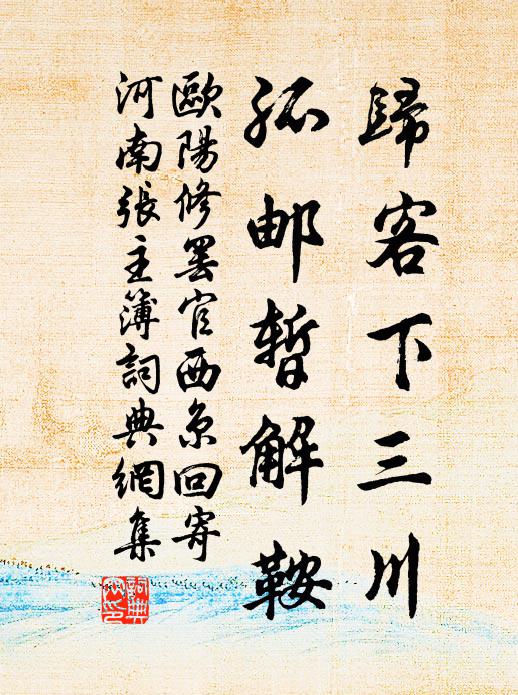 歸客下三川
孤邮暫解鞍
歐陽修罢官西京回寄
河南張主簿詞典網集